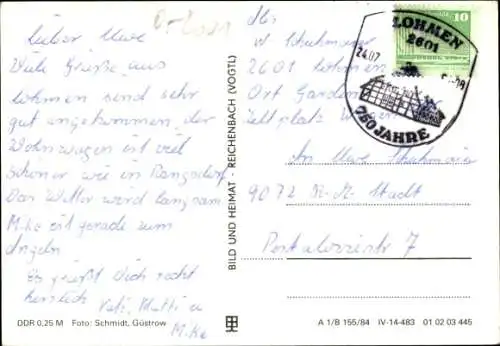 Lieber Uwe
Viele Grüße aus
Lohmen sind sehr
gut angekommen, der
Wohnwagen ist viel
schöner wie in Rangsdorf
Das Wetter wird langsam
Mike ist gerade zum
Angeln
Es grüßt Dich recht
herzlich Vati, Mutti u
Mike
DDR 0,25 M Foto: Schmidt, Güstrow
BILD UND HEIMAT · REICHENBACH (VOGTL)
Abs:
2601 Lohmen
Ort Garden
Zeltplatz
An Uwe Schuhmann
9072 K.-M.-Stadt
Pestalozzistr 7
A 1/B 155/84 IV-14-483 01 02 03 445
10
LOHMEN
2601
24.07
750 JAHRE